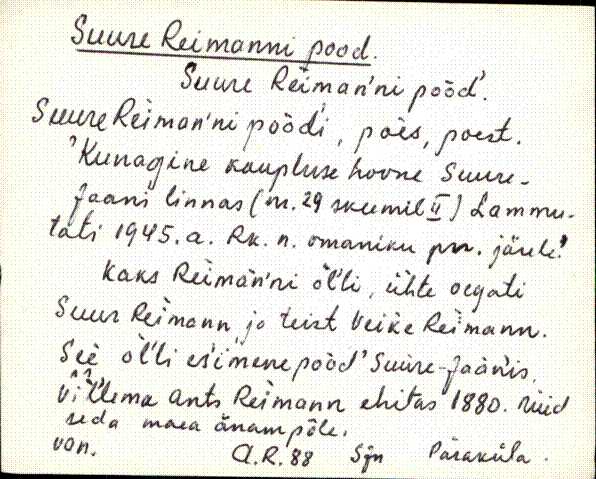 Suure Reimanni pood.
Suure Reiman'ni pööd'.
Suure Reiman'ni pöödi, pöes, poest.
"Kunagine kaupluse hoone Suure-
Jaani linnas (nr. 29 skeemil II) Lammu-
tati 1945. a. Rk. n. omaniku pn. järele."
Kaks Reiman'ni ol'li, ühte oegati
Suur Reimann ja teist Veike Reimann.
See ol'li esimene pööd' Suure-Jaanis,
Vil'lema Ants Reimann ehitas 1880. nüid
seda maea änam põle.
von. A.R. 88 Sjn Päraküla.